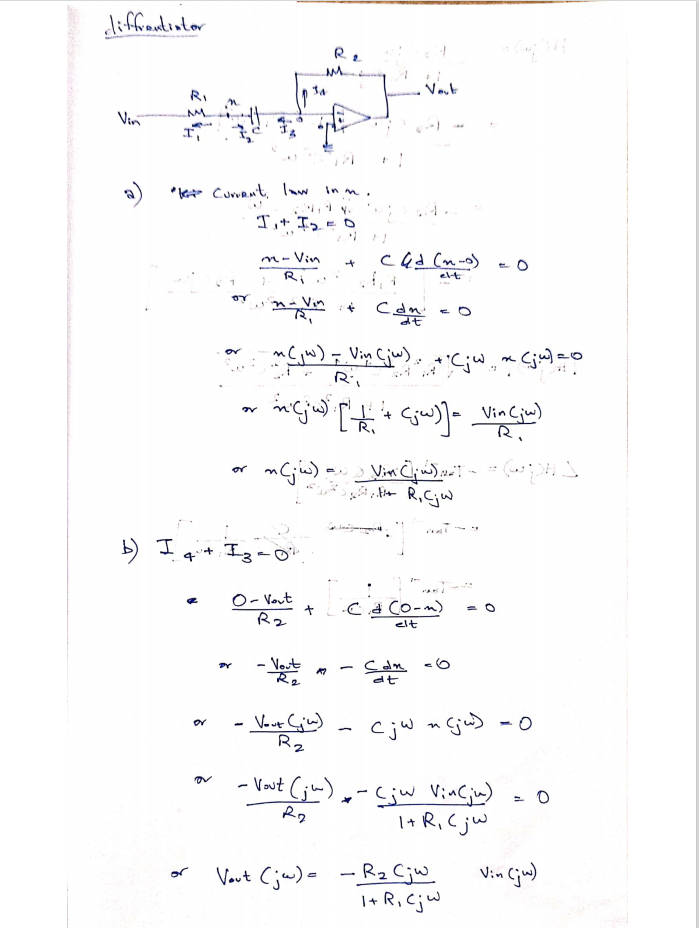 diffrentiator
R2
I4
Vout
R1
n
Vin
I1 I2 C I3
a) Current law in n.
I1 + I2 = 0
n - Vin / R1 + C d(n-0) / dt = 0
or n - Vin / R1 + C dn / dt = 0
or n(jw) - Vin(jw) / R1 + Cjw n(jw) = 0
or n(jw) [1/R1 + Cjw)] = Vin(jw) / R1
or n(jw) = Vin(jw) / 1+ R1Cjw
b) I4 + I3 = 0
0 - Vout / R2 + C d(0-n) / dt = 0
or - Vout / R2 - C dn / dt = 0
or - Vout(jw) / R2 - Cjw n(jw) = 0
or - Vout(jw) / R2 - Cjw Vin(jw) / 1+ R1Cjw = 0
or Vout(jw) = - R2Cjw / 1+ R1Cjw Vin(jw)